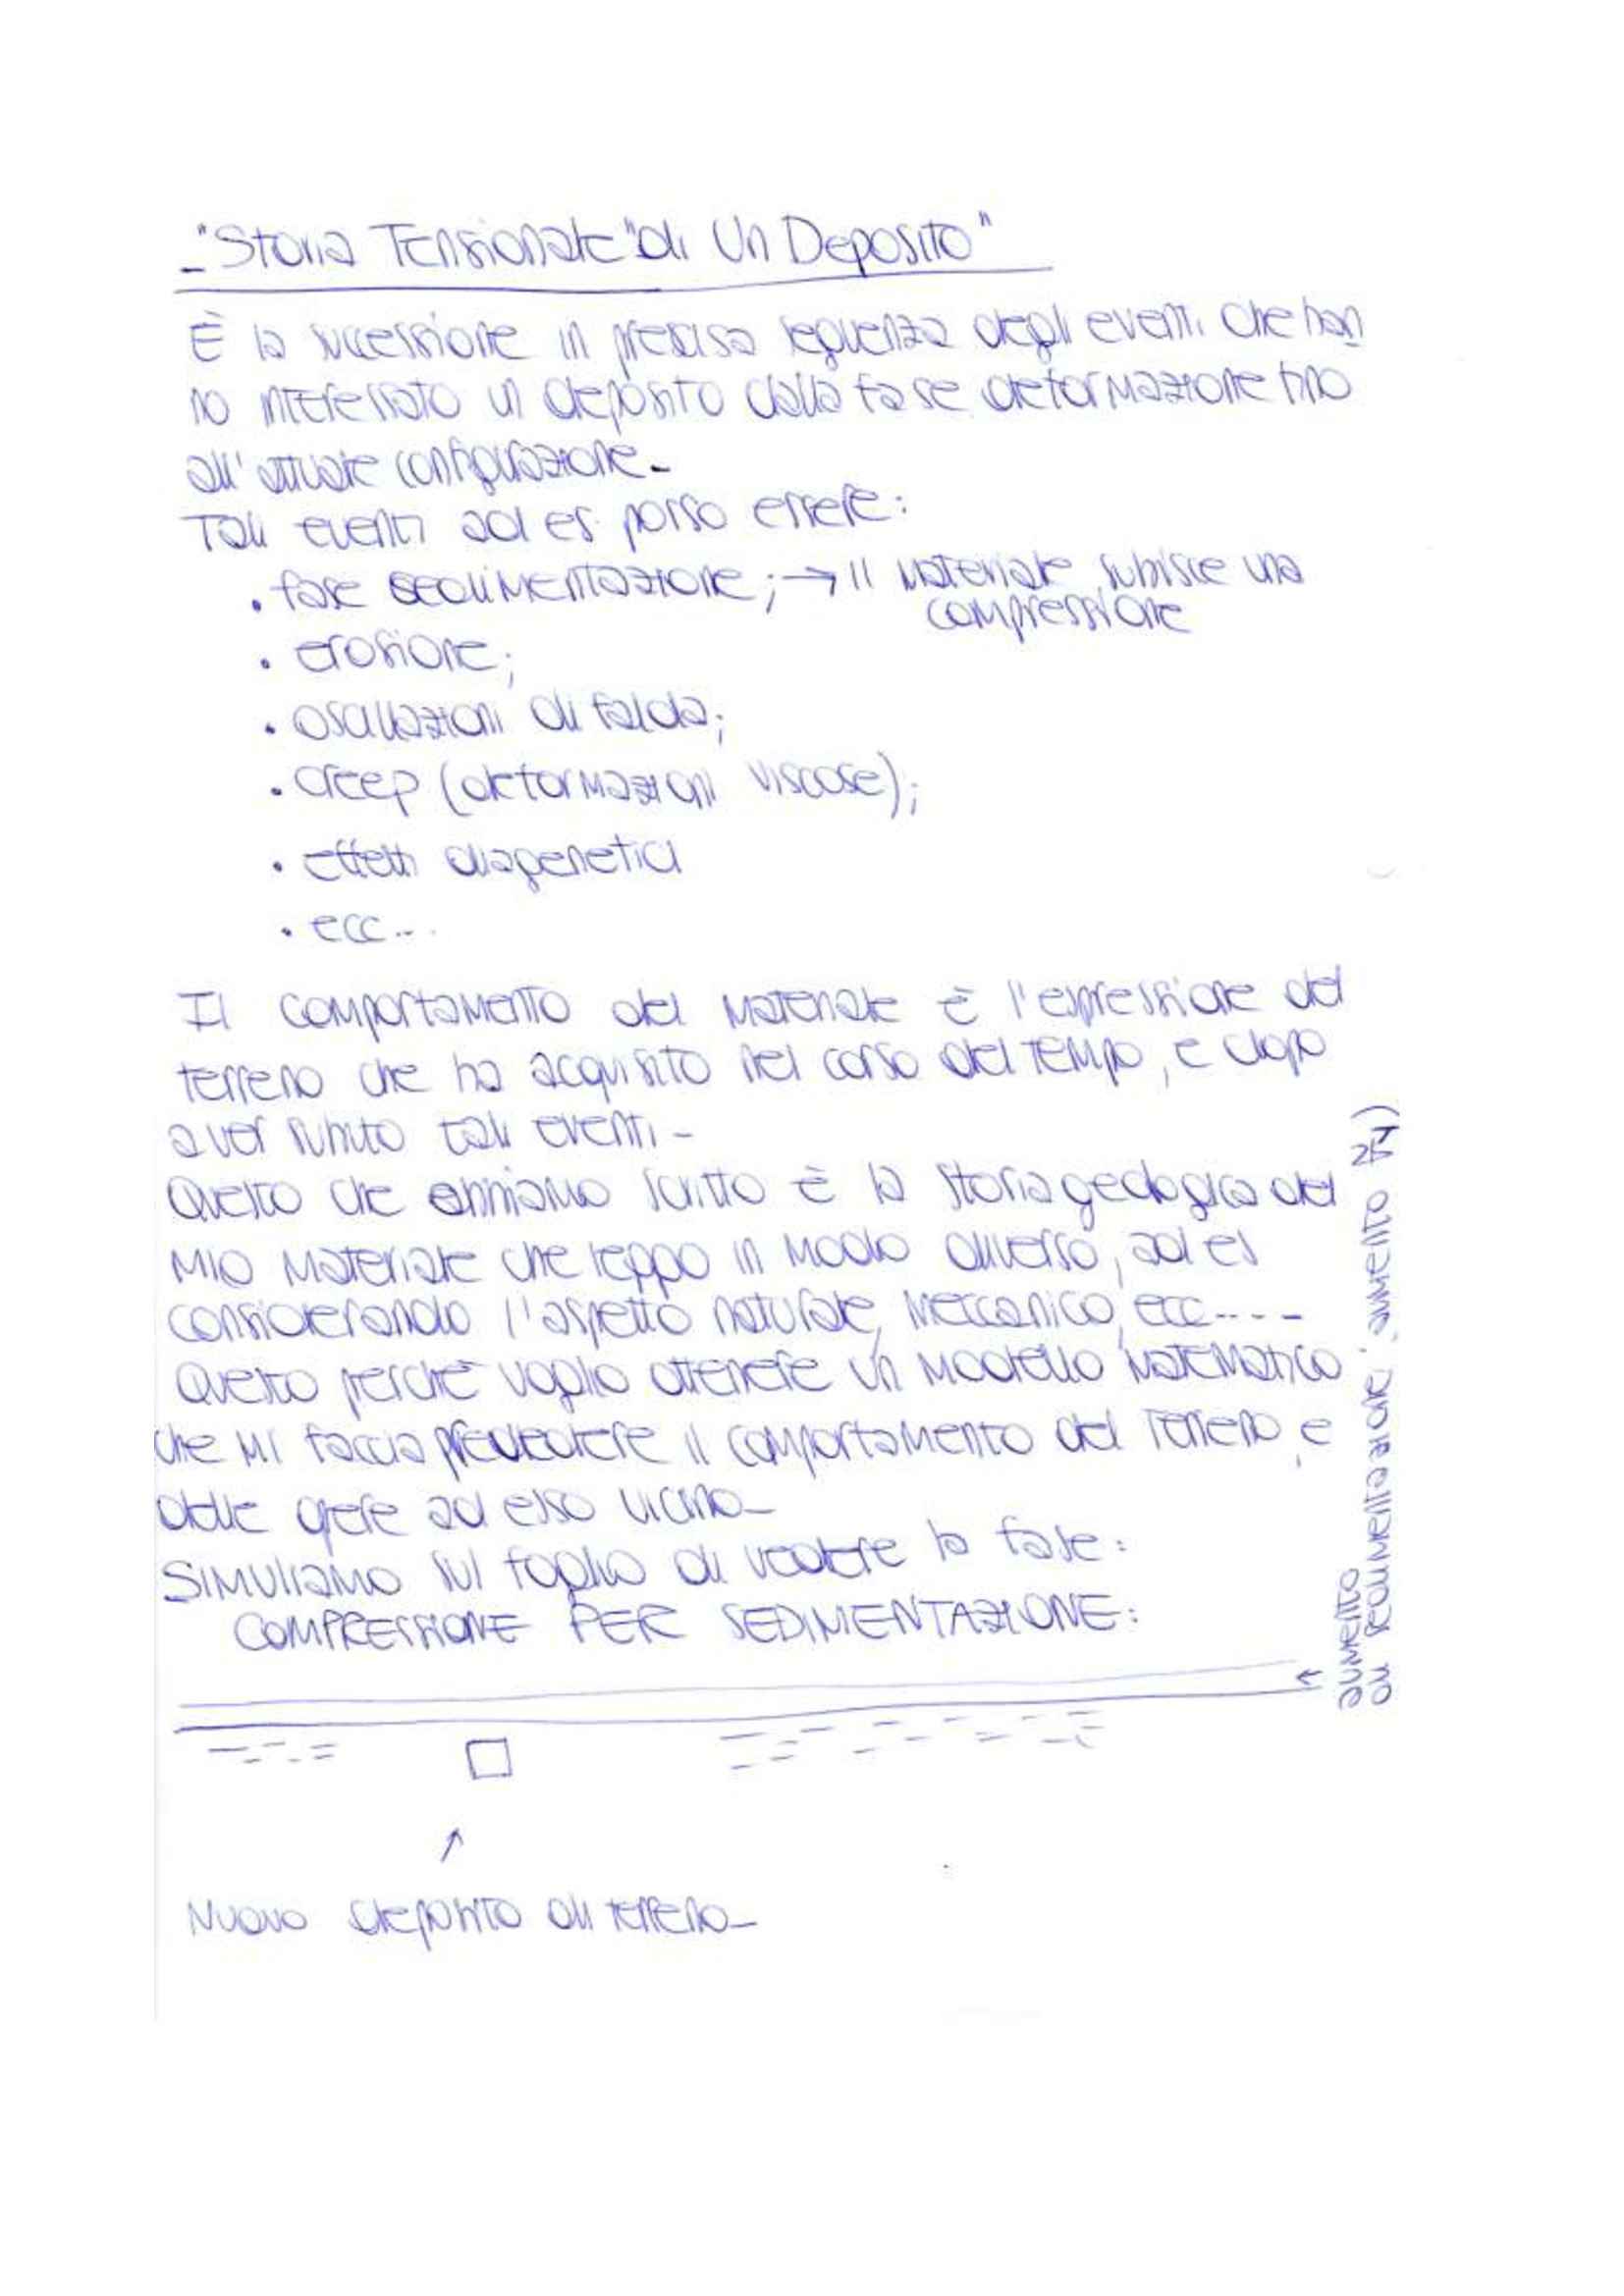 - "Storia Tensionale" di Un Deposito"
È la successione in precisa sequenza degli eventi che han
no interessato un deposito dalla fase deformazione fino
all'attuale configurazione.
Tali eventi ad es. posso essere:
. fase sedimentazione; → Il materiale subisce una
compressione
. erosione;
. oscillazioni di falda;
. creep (deformazioni viscose);
. effetti diagenetici
. ecc...
Il comportamento del materiale è l'espressione del
terreno che ha acquisito nel corso del tempo, e dopo
aver subito tali eventi -
Questo che abbiamo scritto è la storia geologica del
mio materiale che leggo in modo diverso, ad es
considerando l'aspetto naturale, meccanico, ecc----
Questo perchè voglio ottenere un modello matematico
che mi faccia prevedere il comportamento del terreno, e
delle opere ad esso vicino-
Simuliamo sul foglio di vedere la fase:
COMPRESSIONE PER SEDIMENTAZIONE:
aumento
di sedimentazione, aumento
Nuovo deposito di terreno-